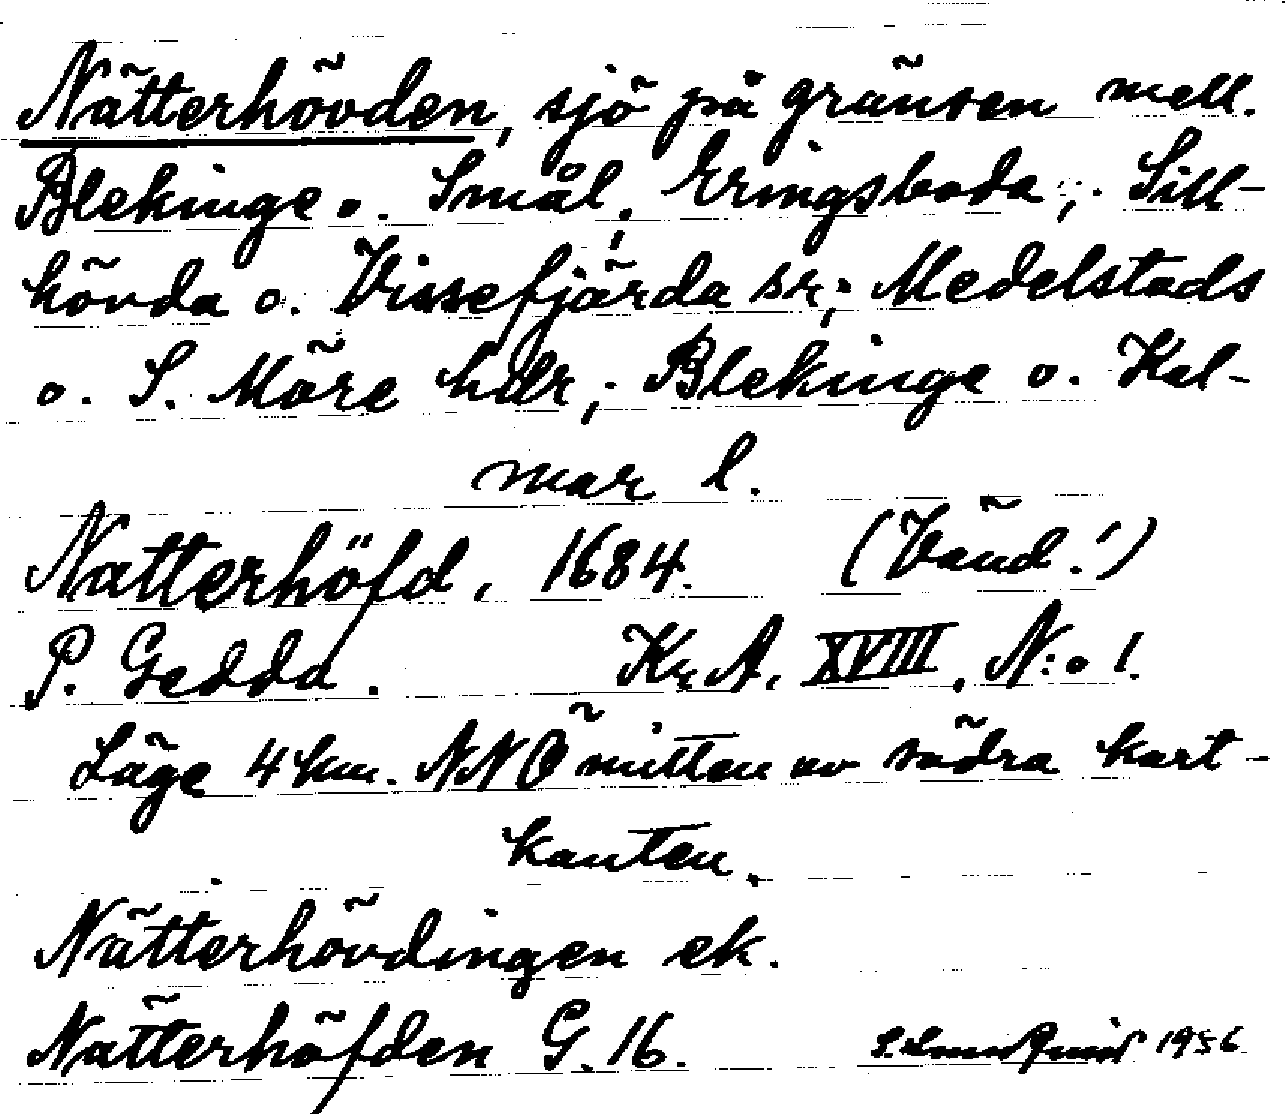 Nätterhövden, sjö på gränsen mell.
Blekinge o. Smål., Eringsboda, Sill-
hövda o. Vissefjärda sr; Medelstads
o. S. Möre hdr; Blekinge o. Kal-
mar l.
Natterhöfd, 1684. (Vänd!)
P. Gedda. Kr.A. XVIII, N:o 1.
Läge 4 km. NNÖ mitten av södra kart-
kanten.
Nätterhövdingen ek.
Nätterhöfden G. 16. 1956